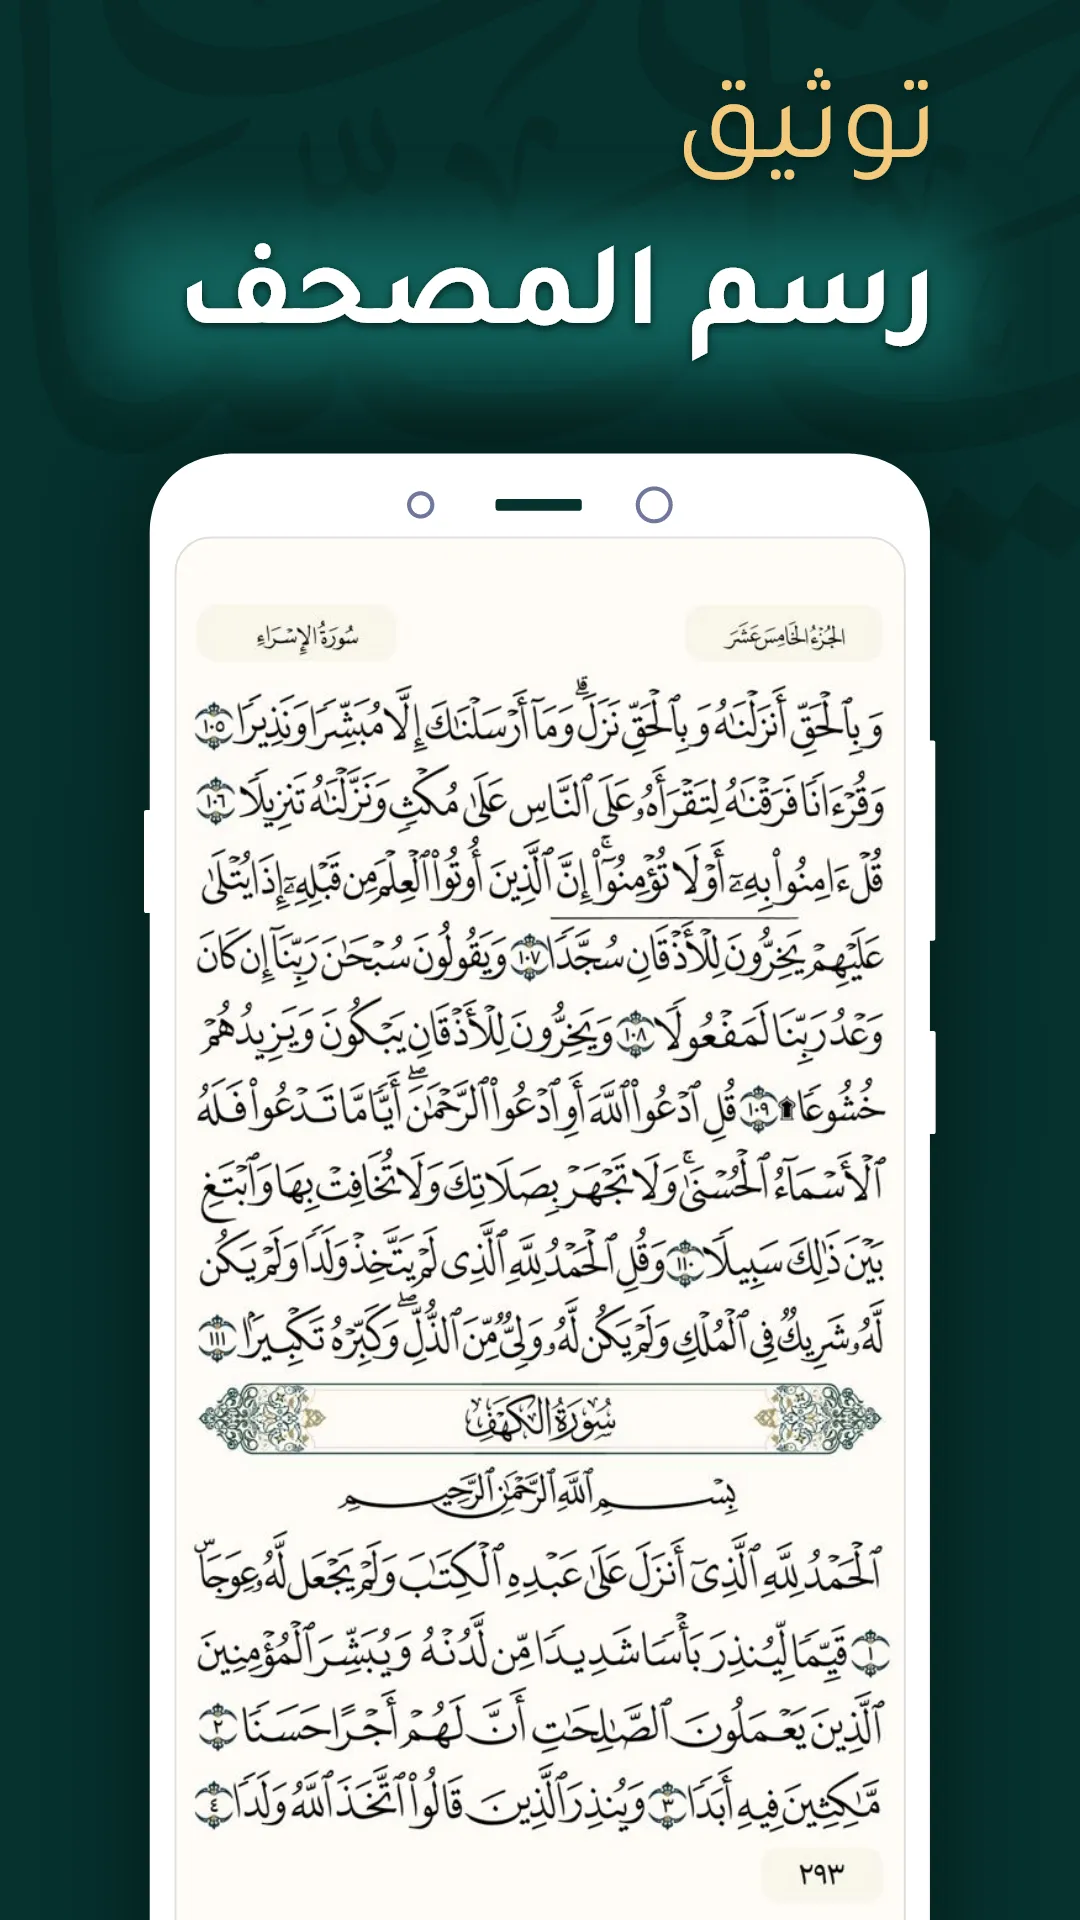 توثيق
رسم المصحف
الجُزْءُ الخَامِسَ عَشَرَ
سُورَةُ الإِسْرَاءِ
وَبِٱلْحَقِّ أَنزَلْنَٰهُ وَبِٱلْحَقِّ نَزَلَۗ وَمَآ أَرْسَلْنَٰكَ إِلَّا مُبَشِّرًا وَنَذِيرًا ١٠٥
وَقُرْءَانًا فَرَقْنَٰهُ لِتَقْرَأَهُۥ عَلَى ٱلنَّاسِ عَلَىٰ مُكْثٍ وَنَزَّلْنَٰهُ تَنزِيلًا ١٠٦
قُلْ ءَامِنُوا۟ بِهِۦٓ أَوْ لَا تُؤْمِنُوٓا۟ۚ إِنَّ ٱلَّذِينَ أُوتُوا۟ ٱلْعِلْمَ مِن قَبْلِهِۦٓ إِذَا يُتْلَىٰ
عَلَيْهِمْ يَخِرُّونَ لِلْأَذْقَانِ سُجَّدًا ١٠٧ وَيَقُولُونَ سُبْحَٰنَ رَبِّنَآ إِن كَانَ
وَعْدُ رَبِّنَا لَمَفْعُولًا ١٠٨ وَيَخِرُّونَ لِلْأَذْقَانِ يَبْكُونَ وَيَزِيدُهُمْ
خُشُوعًا ۩ ١٠٩ قُلِ ٱدْعُوا۟ ٱللَّهَ أَوِ ٱدْعُوا۟ ٱلرَّحْمَٰنَۖ أَيًّا مَّا تَدْعُوا۟ فَلَهُ
ٱلْأَسْمَآءُ ٱلْحُسْنَىٰۚ وَلَا تَجْهَرْ بِصَلَاتِكَ وَلَا تُخَافِتْ بِهَا وَٱبْتَغِ
بَيْنَ ذَٰلِكَ سَبِيلًا ١١٠ وَقُلِ ٱلْحَمْدُ لِلَّهِ ٱلَّذِى لَمْ يَتَّخِذْ وَلَدًا وَلَمْ يَكُن
لَّهُۥ شَرِيكٌ فِى ٱلْمُلْكِ وَلَمْ يَكُن لَّهُۥ وَلِىٌّ مِّنَ ٱلذُّلِّۖ وَكَبِّرْهُ تَكْبِيرًۢا ١١١
سُورَةُ الكَهْفِ
بِسْمِ ٱللَّهِ ٱلرَّحْمَٰنِ ٱلرَّحِيمِ
ٱلْحَمْدُ لِلَّهِ ٱلَّذِىٓ أَنزَلَ عَلَىٰ عَبْدِهِ ٱلْكِتَٰبَ وَلَمْ يَجْعَل لَّهُۥ عِوَجَاۜ
١ قَيِّمًا لِّيُنذِرَ بَأْسًا شَدِيدًا مِّن لَّدُنْهُ وَيُبَشِّرَ ٱلْمُؤْمِنِينَ
ٱلَّذِينَ يَعْمَلُونَ ٱلصَّٰلِحَٰتِ أَنَّ لَهُمْ أَجْرًا حَسَنًا ٢
مَّٰكِثِينَ فِيهِ أَبَدًا ٣ وَيُنذِرَ ٱلَّذِينَ قَالُوا۟ ٱتَّخَذَ ٱللَّهُ وَلَدًا ٤
٢٩٣